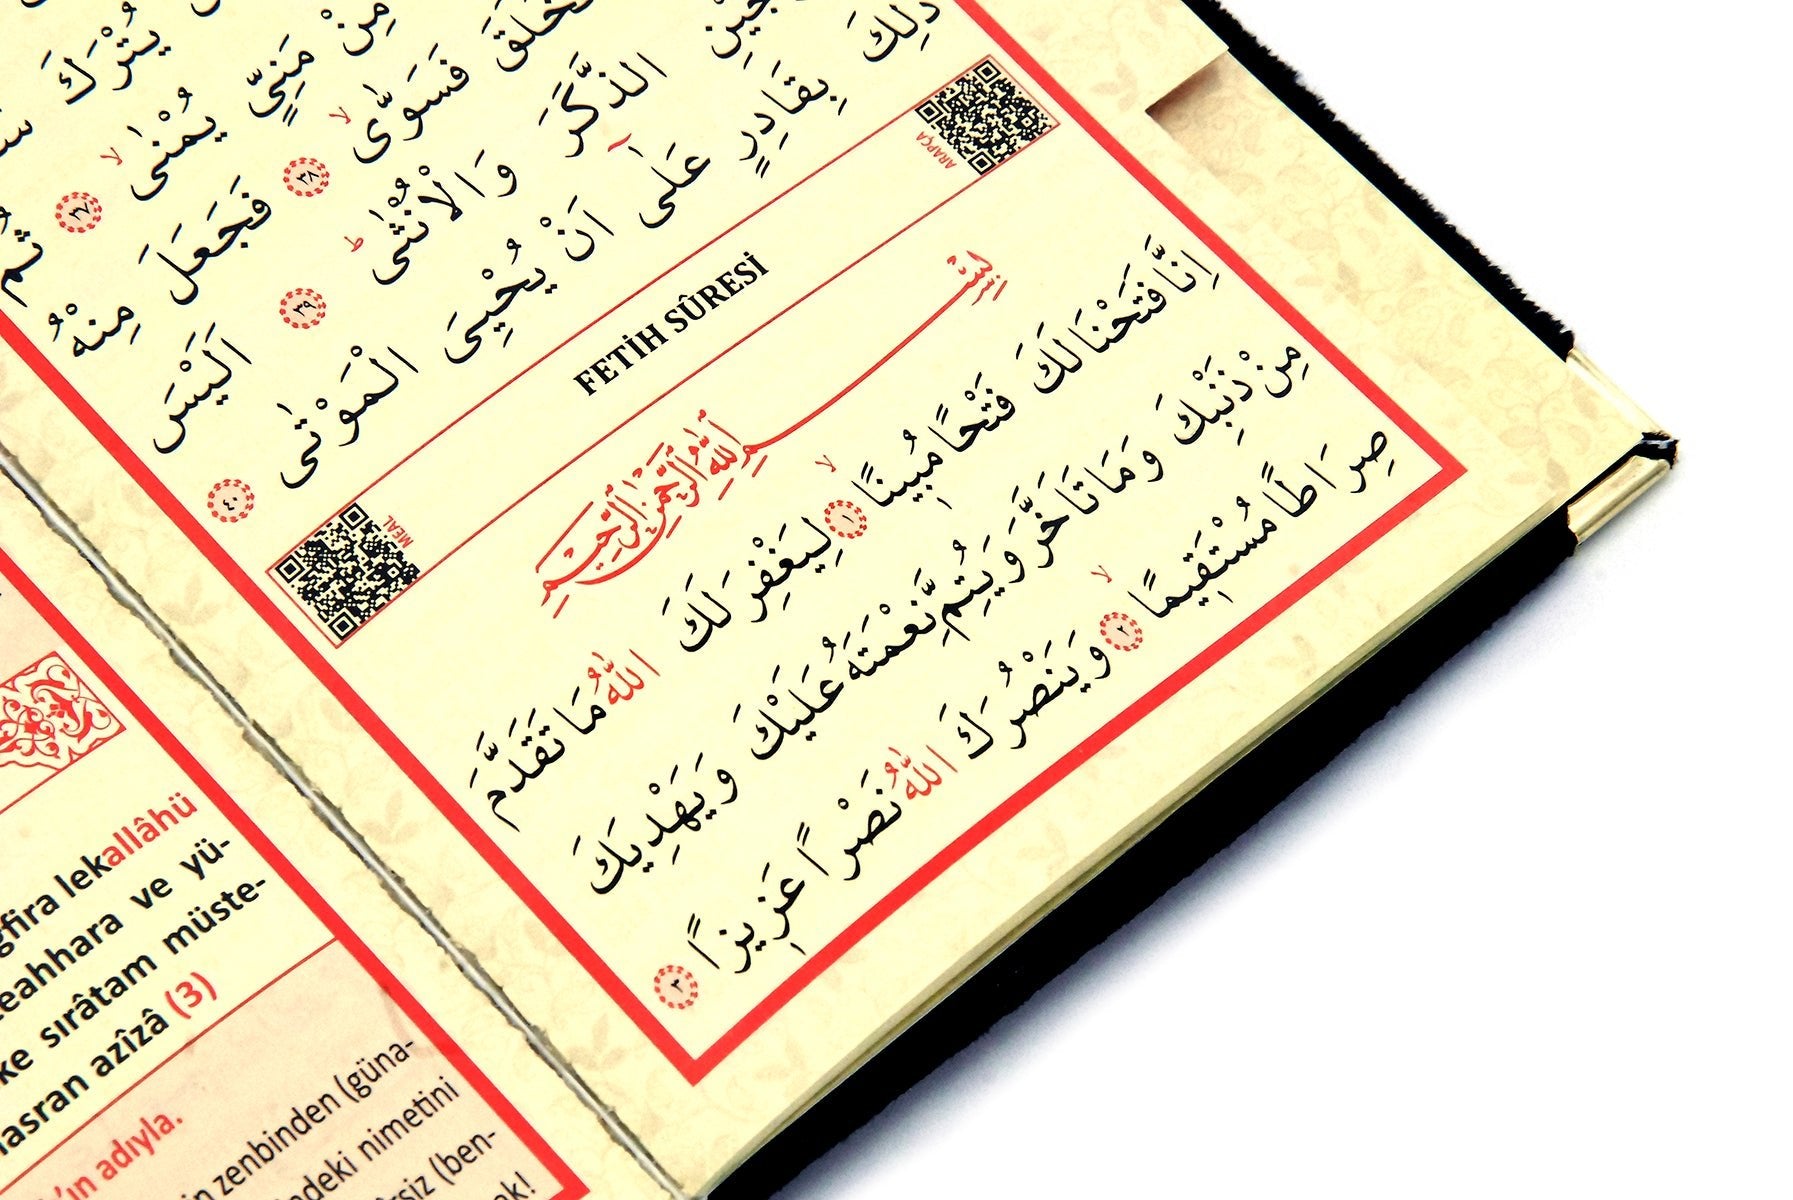 يُتْرَكَ
مِنْ مَنِيٍّ يُمْنٰىۙ ﴿٣٧﴾ ثُمَّ
فَخَلَقَ فَسَوّٰىۙ ﴿٣٨﴾ فَجَعَلَ مِنْهُ
الذَّكَرَ وَالْاُنْثٰىۜ ﴿٣٩﴾ اَلَيْسَ
ذٰلِكَ بِقَادِرٍ عَلٰٓى اَنْ يُحْيِيَ الْمَوْتٰى ﴿٤٠﴾
ARAPÇA
FETİH SÛRESİ
MEAL
بِسْمِ اللّٰهِ الرَّحْمٰنِ الرَّحِيمِ
اِنَّا فَتَحْنَا لَكَ فَتْحًا مُبِينًاۙ ﴿١﴾ لِيَغْفِرَ لَكَ اللّٰهُ مَا تَقَدَّمَ
مِنْ ذَنْبِكَ وَمَا تَاَخَّرَ وَيُتِمَّ نِعْمَتَهُ عَلَيْكَ وَيَهْدِيَكَ
صِرَاطًا مُسْتَقِيمًاۙ ﴿٢﴾ وَيَنْصُرَكَ اللّٰهُ نَصْرًا عَزِيزًا ﴿٣﴾
lekallâhü
ve yü-
sırâtam müste-
azîzâ (3)
adıyla.
zenbinden (güna-
nimetini
(ben-